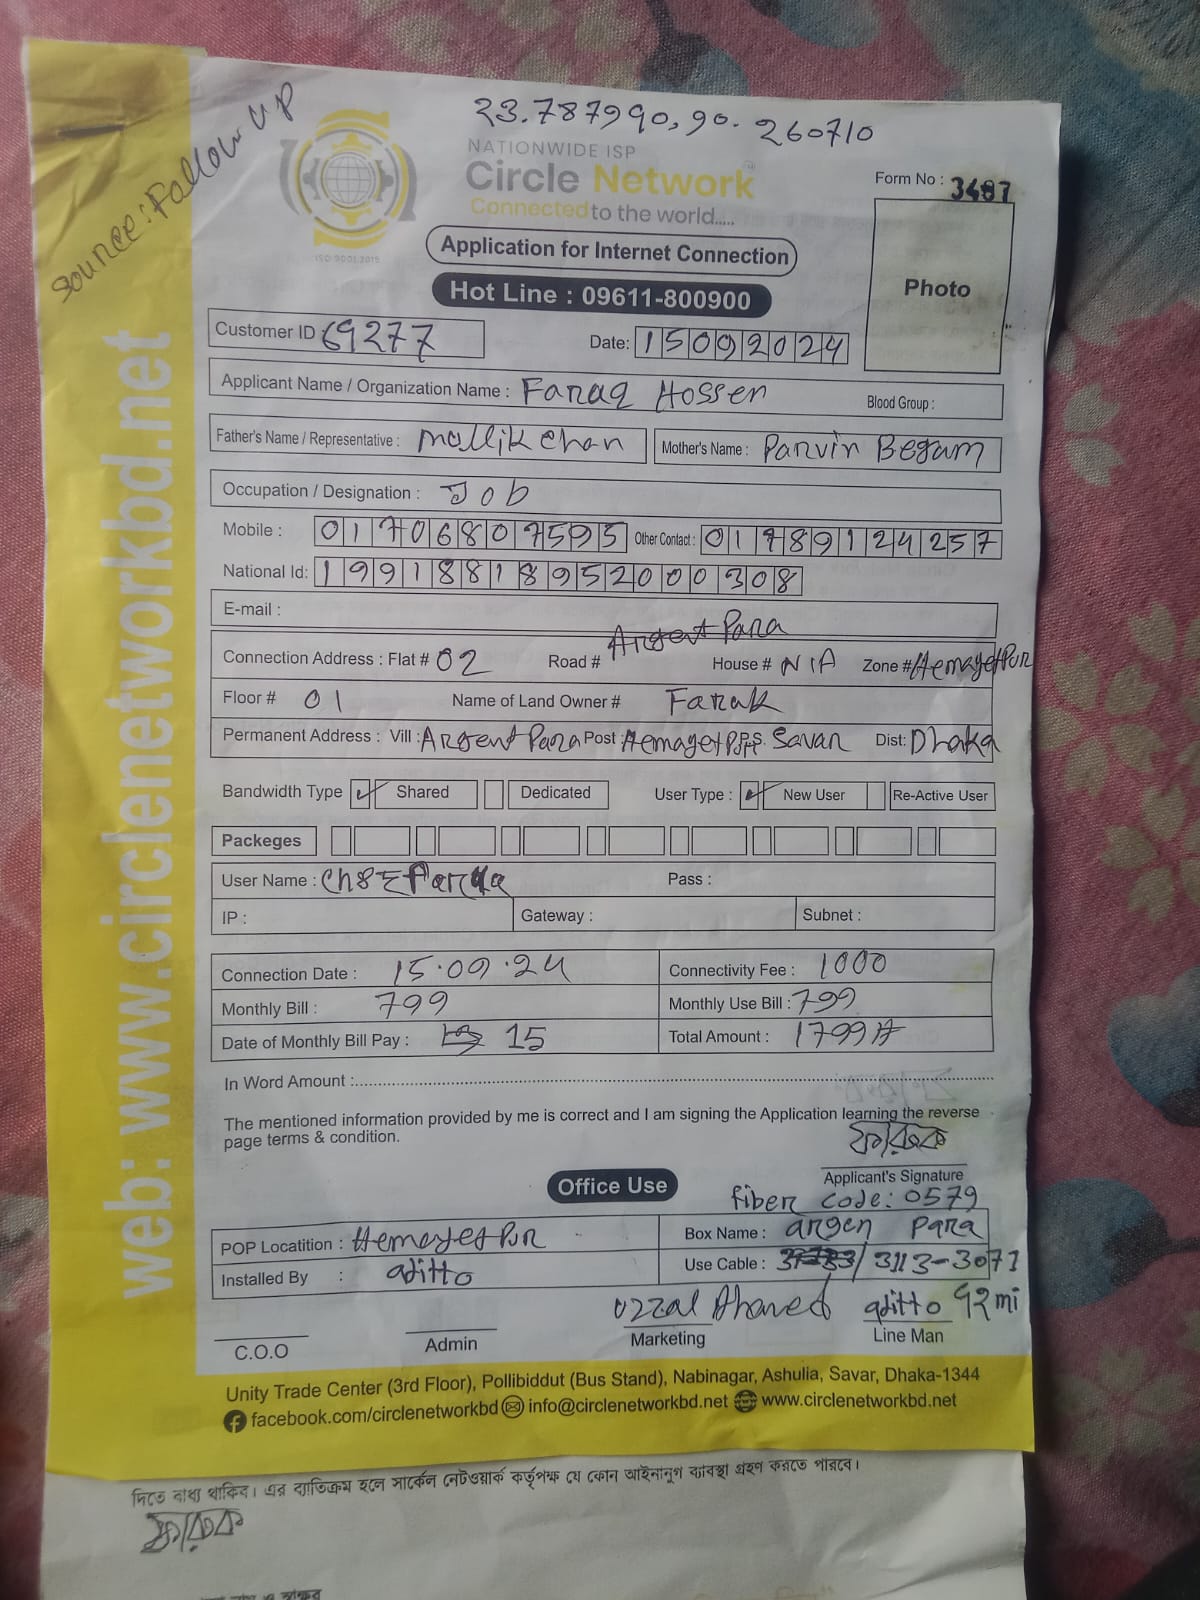 23.787990, 90.260710
Source: Follow up
NATIONWIDE ISP
Circle Network
Connected to the world.....
ISO 9001:2015
Form No : 3487
Application for Internet Connection
Hot Line : 09611-800900
Photo
Customer ID 69277 Date: 15092024
Applicant Name / Organization Name : Faraq Hossen Blood Group :
Father's Name / Representative : Mollik Chan Mother's Name : Parvin Begam
Occupation / Designation : Job
Mobile : 01706807595 Other Contact : 01789124257
National Id: 19918818952000308
E-mail :
Connection Address : Flat # 02 Road # Argent Para House # N/A Zone # Hemayetpur
Floor # 01 Name of Land Owner # Farak
Permanent Address : Vill : Argent Para Post : Hemayetpur P.S. Savar Dist: Dhaka
Bandwidth Type Shared Dedicated User Type : New User Re-Active User
Packeges
User Name : Pass :
IP : Gateway : Subnet :
Connection Date : 15.09.24 Connectivity Fee : 1000
Monthly Bill : 799 Monthly Use Bill : 799
Date of Monthly Bill Pay : 15 Total Amount : 1799
In Word Amount :
The mentioned information provided by me is correct and I am signing the Application learning the reverse
page terms & condition.
ফারুক
Applicant's Signature
Office Use
fiber code: 0579
POP Locatition : Hemayetpur Box Name : argen para
Installed By : aditto Use Cable : / 3113-3071
Uzzal Ahamed aditto 92mi
C.O.O Admin Marketing Line Man
Unity Trade Center (3rd Floor), Pollibiddut (Bus Stand), Nabinagar, Ashulia, Savar, Dhaka-1344
facebook.com/circlenetworkbd info@circlenetworkbd.net www.circlenetworkbd.net
web: www.circlenetworkbd.net
দিতে বাধ্য থাকিব। এর ব্যাতিক্রম হলে সার্কেল নেটওয়ার্ক কর্তৃপক্ষ যে কোন আইনানুগ ব্যাবস্থা গ্রহণ করতে পারবে।
ফারুক